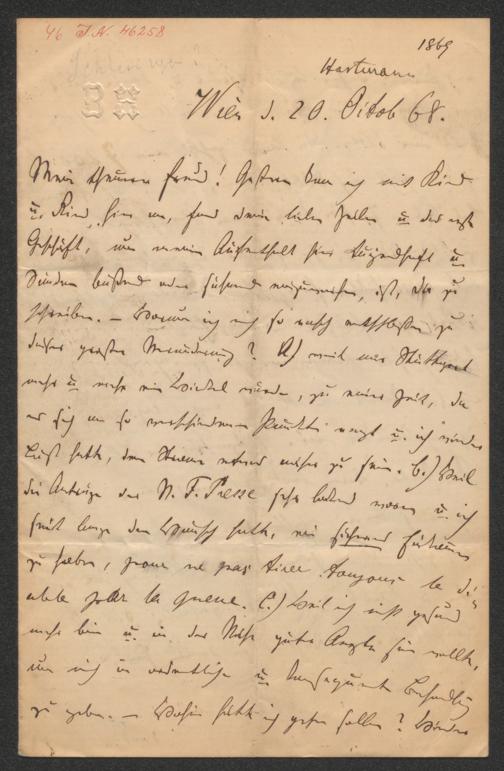 46 J.N. 46258
1869
Hartmann
Wien d. 20. Octob 68.
Mein theurer Freund! Gestern kam ich mit Kind
u. Rind hier an, fand deine lieben Zeilen u. das erste
Geschäft, um meinen Aufenthalt hier tugendhaft u.
Sünden büßend oder sühnend einzuweihen, ist, dir zu
schreiben. — Warum ich mich so rasch entschlossen zu
dieser großen Veränderung? A) weil mir Stuttgart
mehr u. mehr ein Winkel wurde, zu einer Zeit, da
es sich an so verschiedenen Punkten regt u. ich wieder
Lust hatte, dem Strome etwas näher zu sein. b.) Weil
die Anträge der N. F. Presse sehr lockend waren u. ich
seit lange den Wunsch hatte, ein sicheres
zu haben, pour ne pas tirer toujours le di-
able par la queue. C.) Weil ich nicht gesund
mehr bin u. in der Nähe guter Aerzte sein wollte,
um mich in ordentliche u. consequente Behandlung
zu geben. — Wohin hätte ich gehen sollen? Wieder